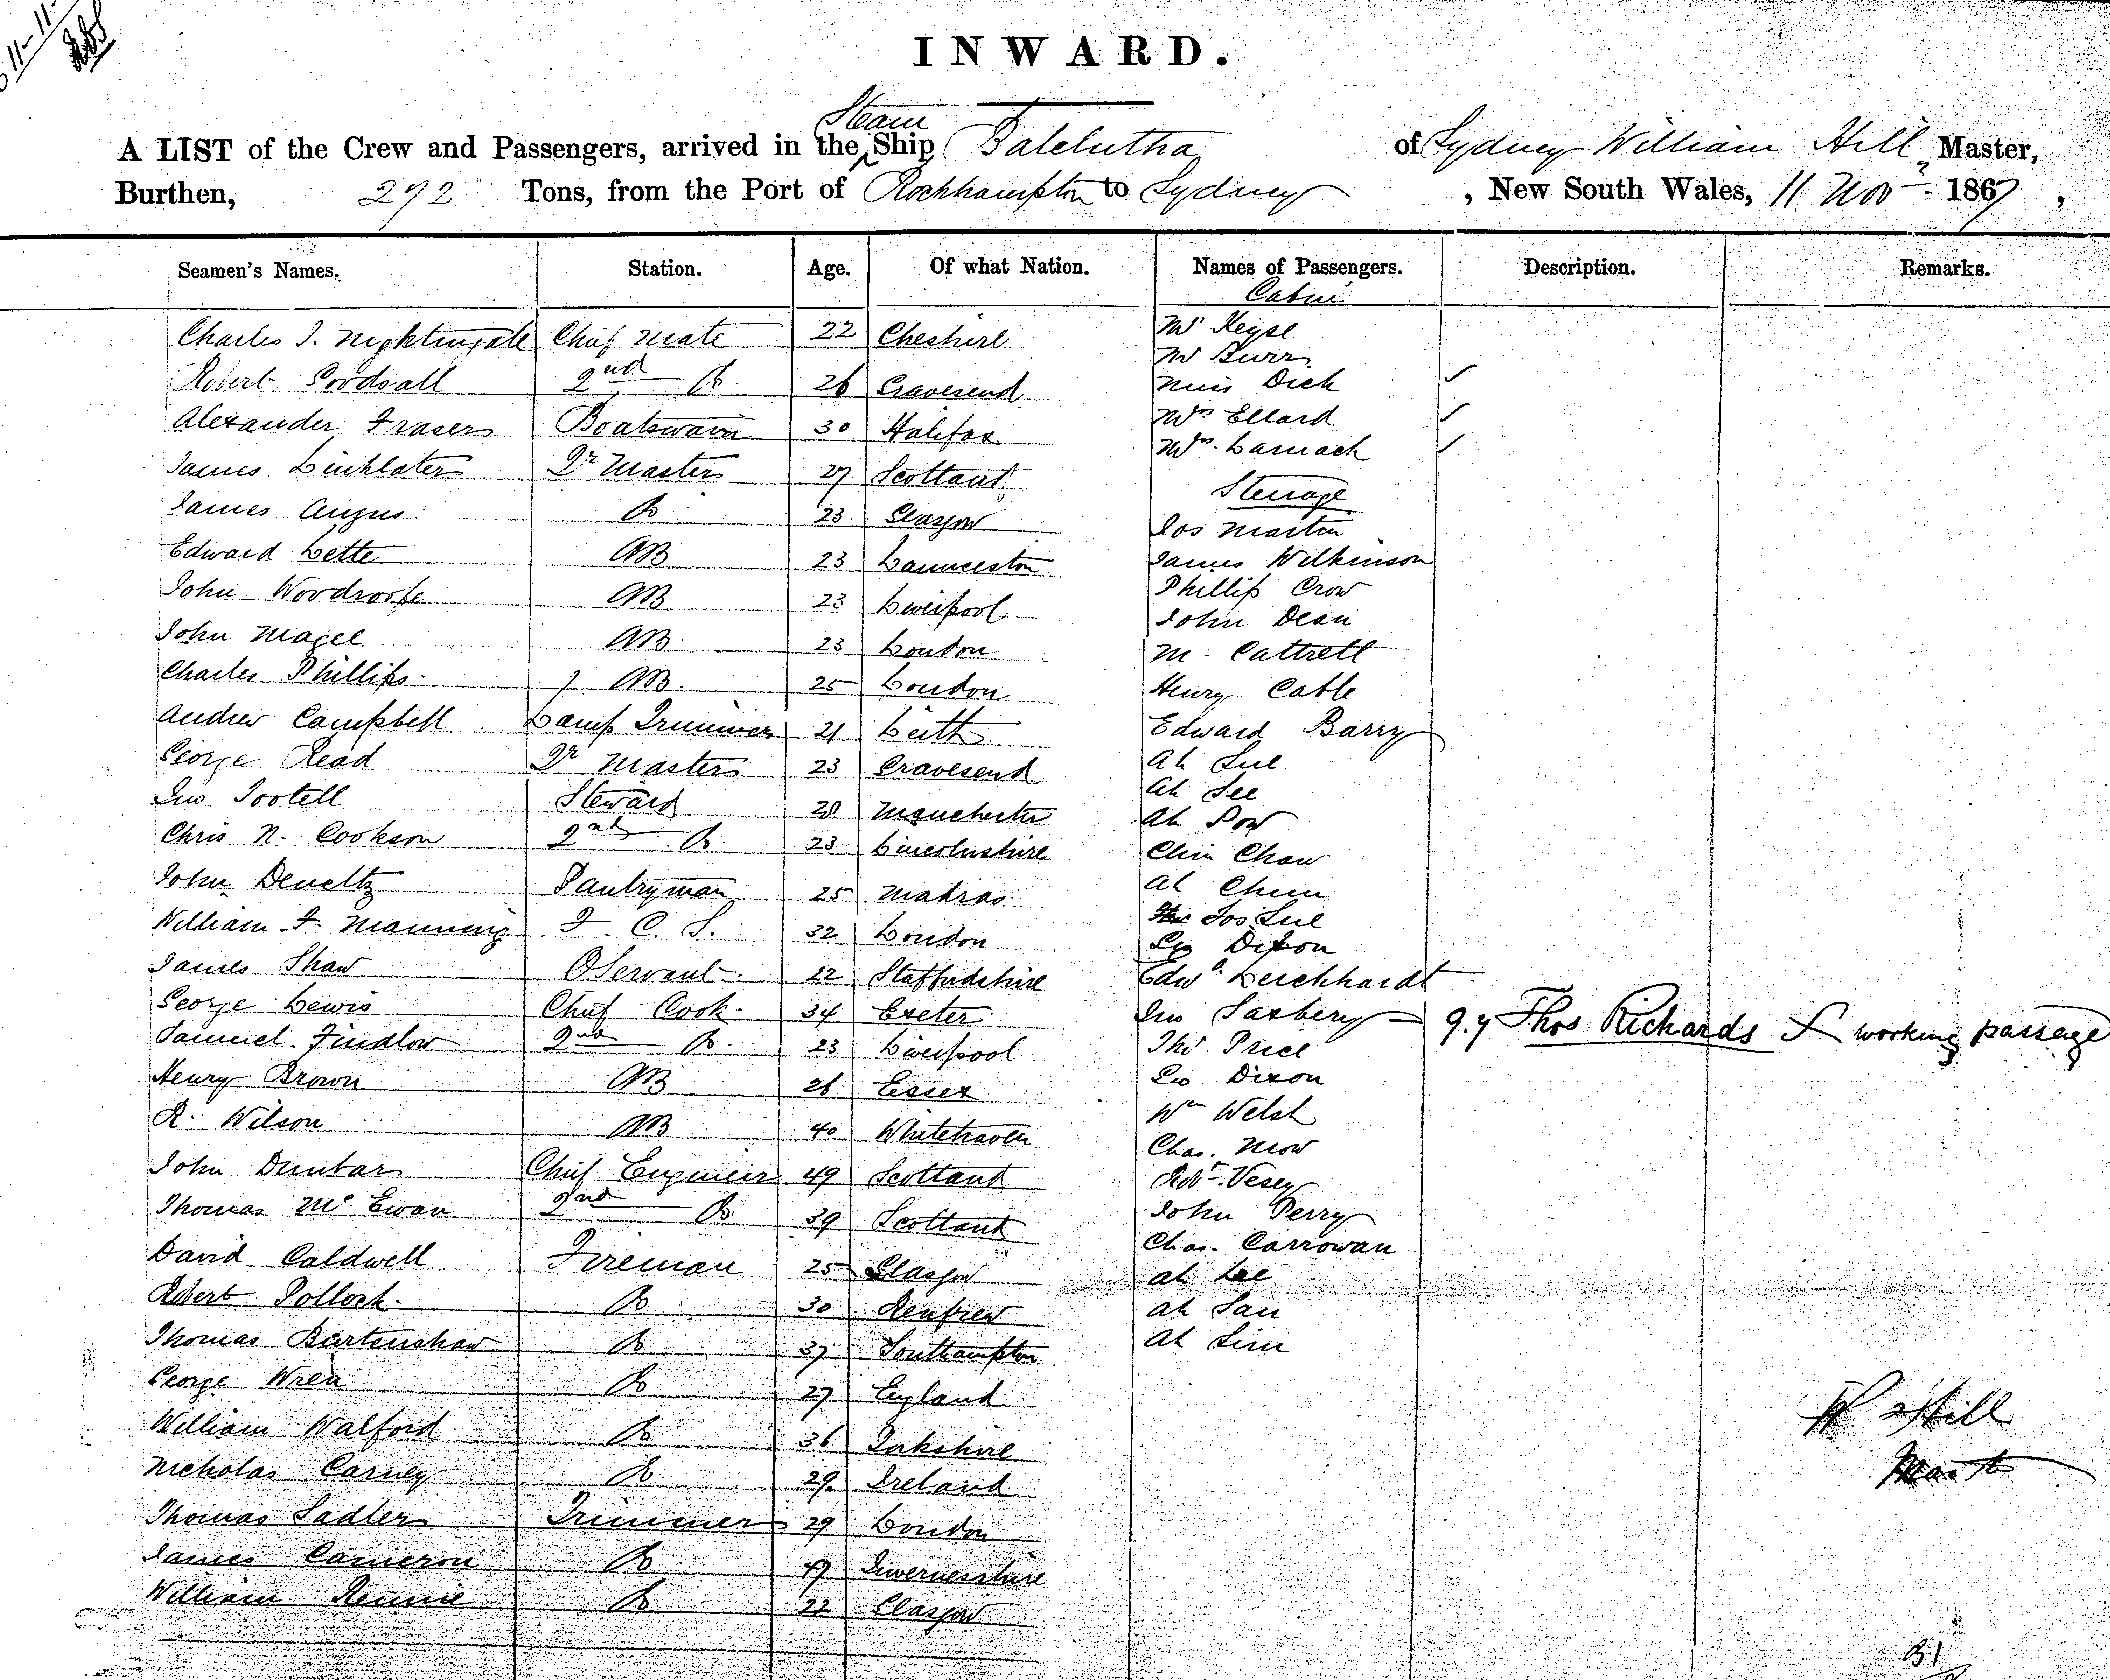 11-11-
INWARD.
Steam
A LIST of the Crew and Passengers, arrived in the Ship Balclutha of Sydney William Hill, Master,
Burthen, 292 Tons, from the Port of Rockhampton to Sydney, New South Wales, 11 Nov 1867,
Seamen's Names. Station. Age. Of what Nation. Names of Passengers. Description. Remarks.
Cabin
Charles J. Nightingale Chief Mate 22 Cheshire Mr Keyse
Mr Burr
Robert Gordsall 2nd Do 26 Gravesend Miss Dick
Alexander Fraser Boatswain 30 Halifax Mrs Ellard
James Linklater Qr Master 27 Scotland Mrs Larnach
Steerage
James Angus Do 23 Glasgow Jos Martin
Edward Lette AB 23 Launceston James Wilkinson
John Woodroofe AB 23 Liverpool Phillip Crow
John Dean
John Magee AB 23 London M. Cattrell
Charles Phillips AB 25 London Henry Cable
Andrew Campbell Lamp Trimmer 21 Leith Edward Barry
George Read Qr Master 23 Gravesend Ah Sue
Jno Tootell Steward 28 Manchester Ah See
Ah Pow
Chris N. Cookson 2nd Do 23 Lincolnshire Chin Chaw
John Deneltz Pantryman 25 Madras Ah Chun
William F. Manning F. C. S. 32 London Jos Sue
Geo Dixon
James Shaw O Servant 22 Staffordshire Edwd Leichhardt
George Lewis Chief Cook 34 Exeter Jno Saxbery q.y Thos Richards working passage
Samuel Findlow 2nd Do 23 Liverpool Thos Price
Henry Brown AB 26 Essex Geo Dixon
R. Wilson AB 40 Whitehaven Wm Welsh
Chas. Mow
John Dunbar Chief Engineer 49 Scotland Robt. Vesey
Thomas McEwan 2nd Do 39 Scotland John Perry
David Caldwell Fireman 25 Glasgow Chas. Carrowan
Ah Lee
Robert Pollock Do 30 Renfrew Ah San
Thomas Birtenshaw Do 37 Southampton Ah Sim
George Wren Do 27 England
W Hill
William Walford Do 36 Yorkshire
Nicholas Carney Do 29 Ireland
Master
Thomas Sadler Trimmer 29 London
James Cameron Do 47 Invernesshire
William Rennie Do 22 Glasgow
31